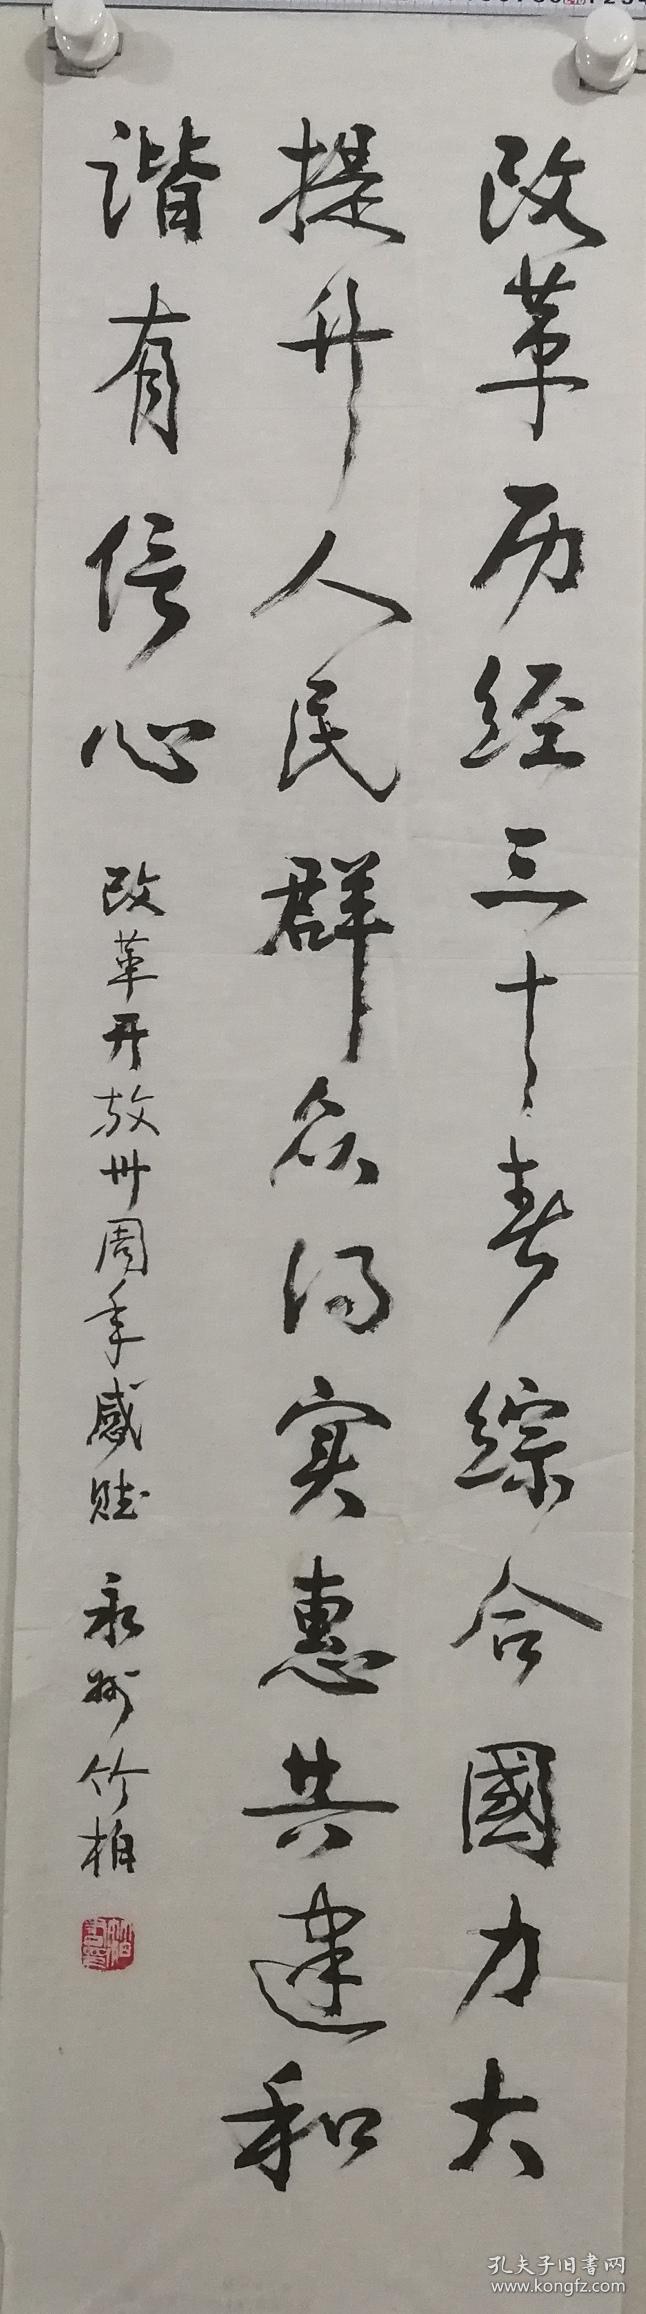 改革历经三十春综合國力大
提升人民群众得实惠共建和
谐有信心
改革开放卅周年感赋 永州竹柏
孔夫子旧书网
www.kongfz.com